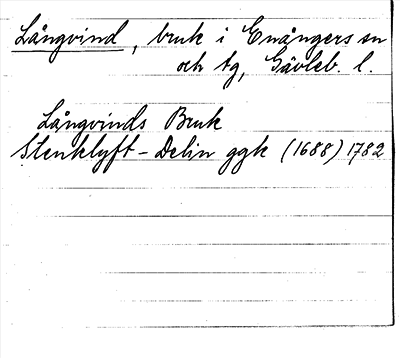 Långvind, bruk i Enångers sn
och tg, Gävleb. l.
Långvinds Bruk
Stenklyft - Delin ggk (1688) 1782